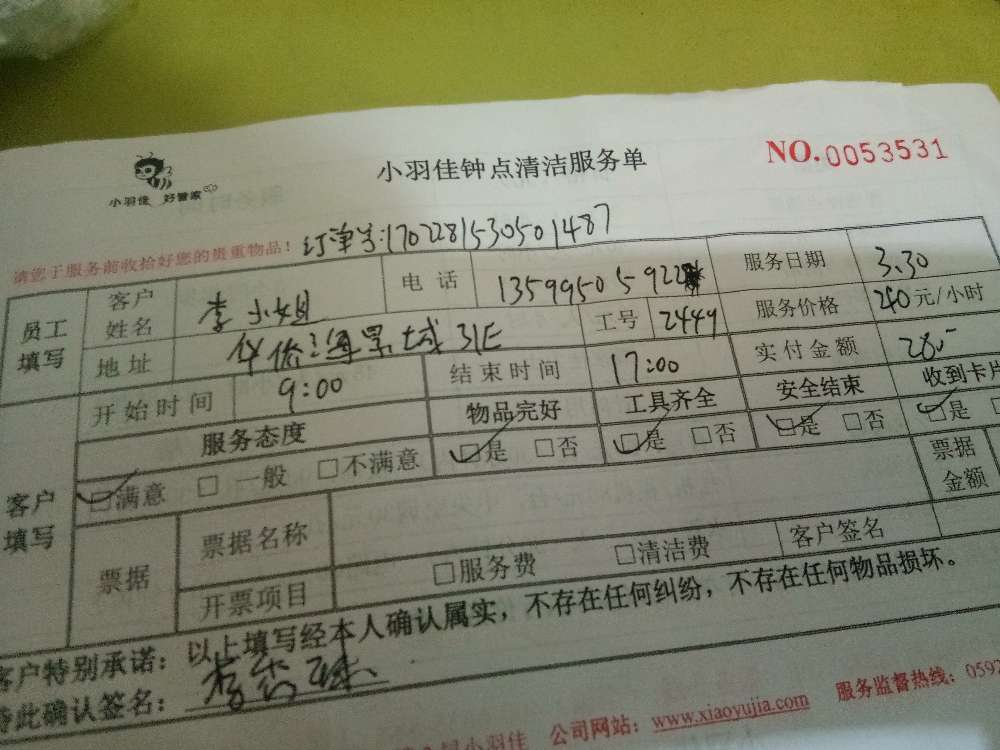 小羽佳 好管家
小羽佳钟点清洁服务单
NO.0053531
请您于服务前收拾好您的贵重物品！
订单号:17022815305014 87
员工填写 客户姓名 李小姐 电话 1359950 5922 服务日期 3.30
地址 海景城31E 工号 2449 服务价格 240元/小时
开始时间 9:00 结束时间 17:00 实付金额 280
服务态度 物品完好 工具齐全 安全结束 收到卡片
客户填写 □满意 □一般 □不满意 □是 □否 □是 □否 □是 □否 □是
票据 票据名称 票据金额
开票项目 □服务费 □清洁费 客户签名
客户特别承诺：以上填写经本人确认属实，不存在任何纠纷，不存在任何物品损坏。
特此确认签名：
小羽佳 公司网站：www.xiaoyujia.com 服务监督热线：0592